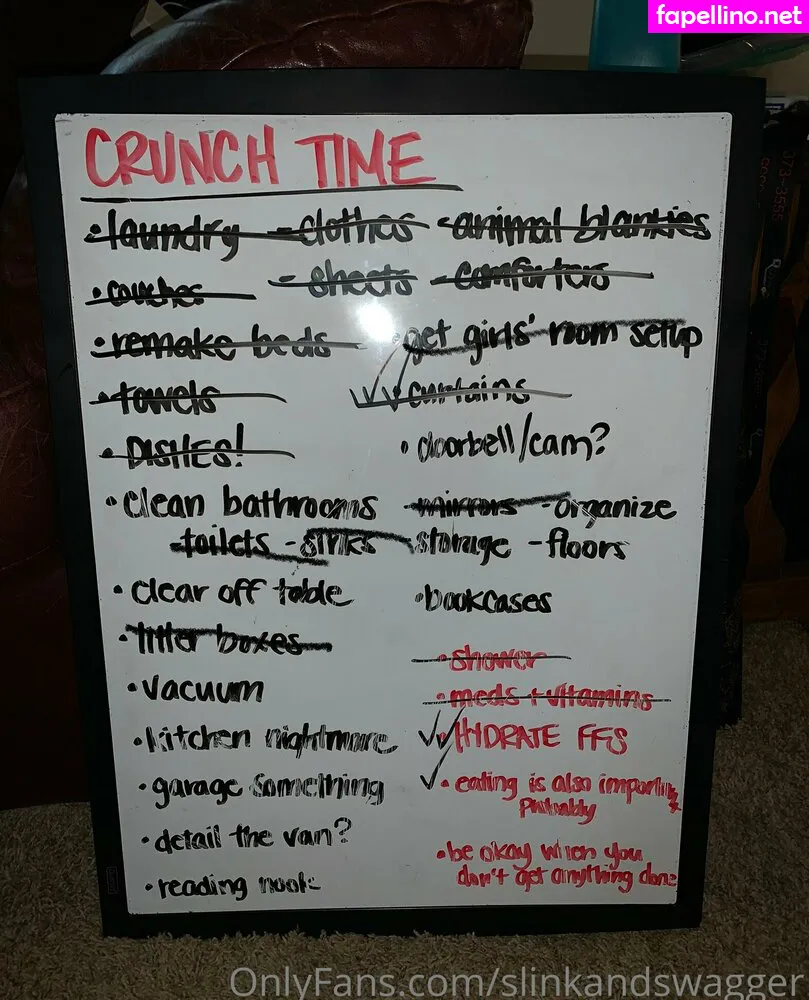 fapellino.net
CRUNCH TIME
• laundry - clothes - animal blankies
- sheets - comforters
• couches
• remake beds
• towels
• DISHES!
• clean bathrooms - mirrors - organize
toilets - sinks storage - floors
• clear off table
• litter boxes
• vacuum
• kitchen nightmare
• garage something
• detail the van?
• reading nook
• get girls' room setup
✓✓ curtains
• doorbell/cam?
• bookcases
• shower
• meds + vitamins
✓✓ • HYDRATE FFS
✓ • eating is also important
Probably
• be okay when you
don't get anything done
OnlyFans.com/slinkandswagger